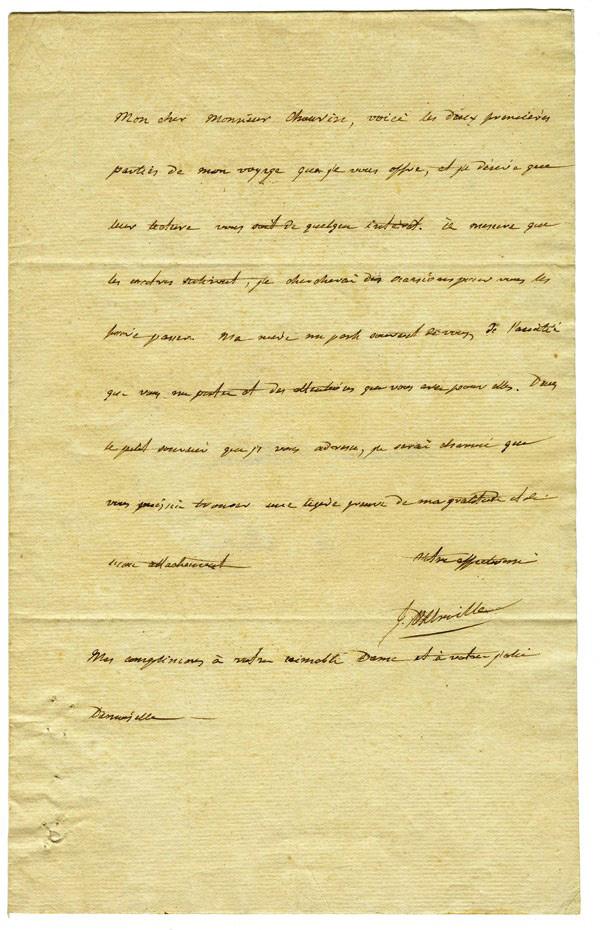 Mon cher Monsieur Chauvin, voici les deux premières
parties de mon voyage que je vous offre, et je désire que
leur lecture vous soit de quelque intérêt. à mesure que
les autres suivront, je chercherai des occasions pour vous les
faire passer. Ma mère me parle souvent de vous, de l'amitié
que vous me portez et des attentions que vous avez pour elle. Dans
le petit souvenir que je vous adresse, je serai charmé que
vous puissiez trouver une légère preuve de ma gratitude et de
mon attachement
votre affectionné
J. D'Urville
Mes complimens à votre aimable Dame et à votre jolie
Demoiselle